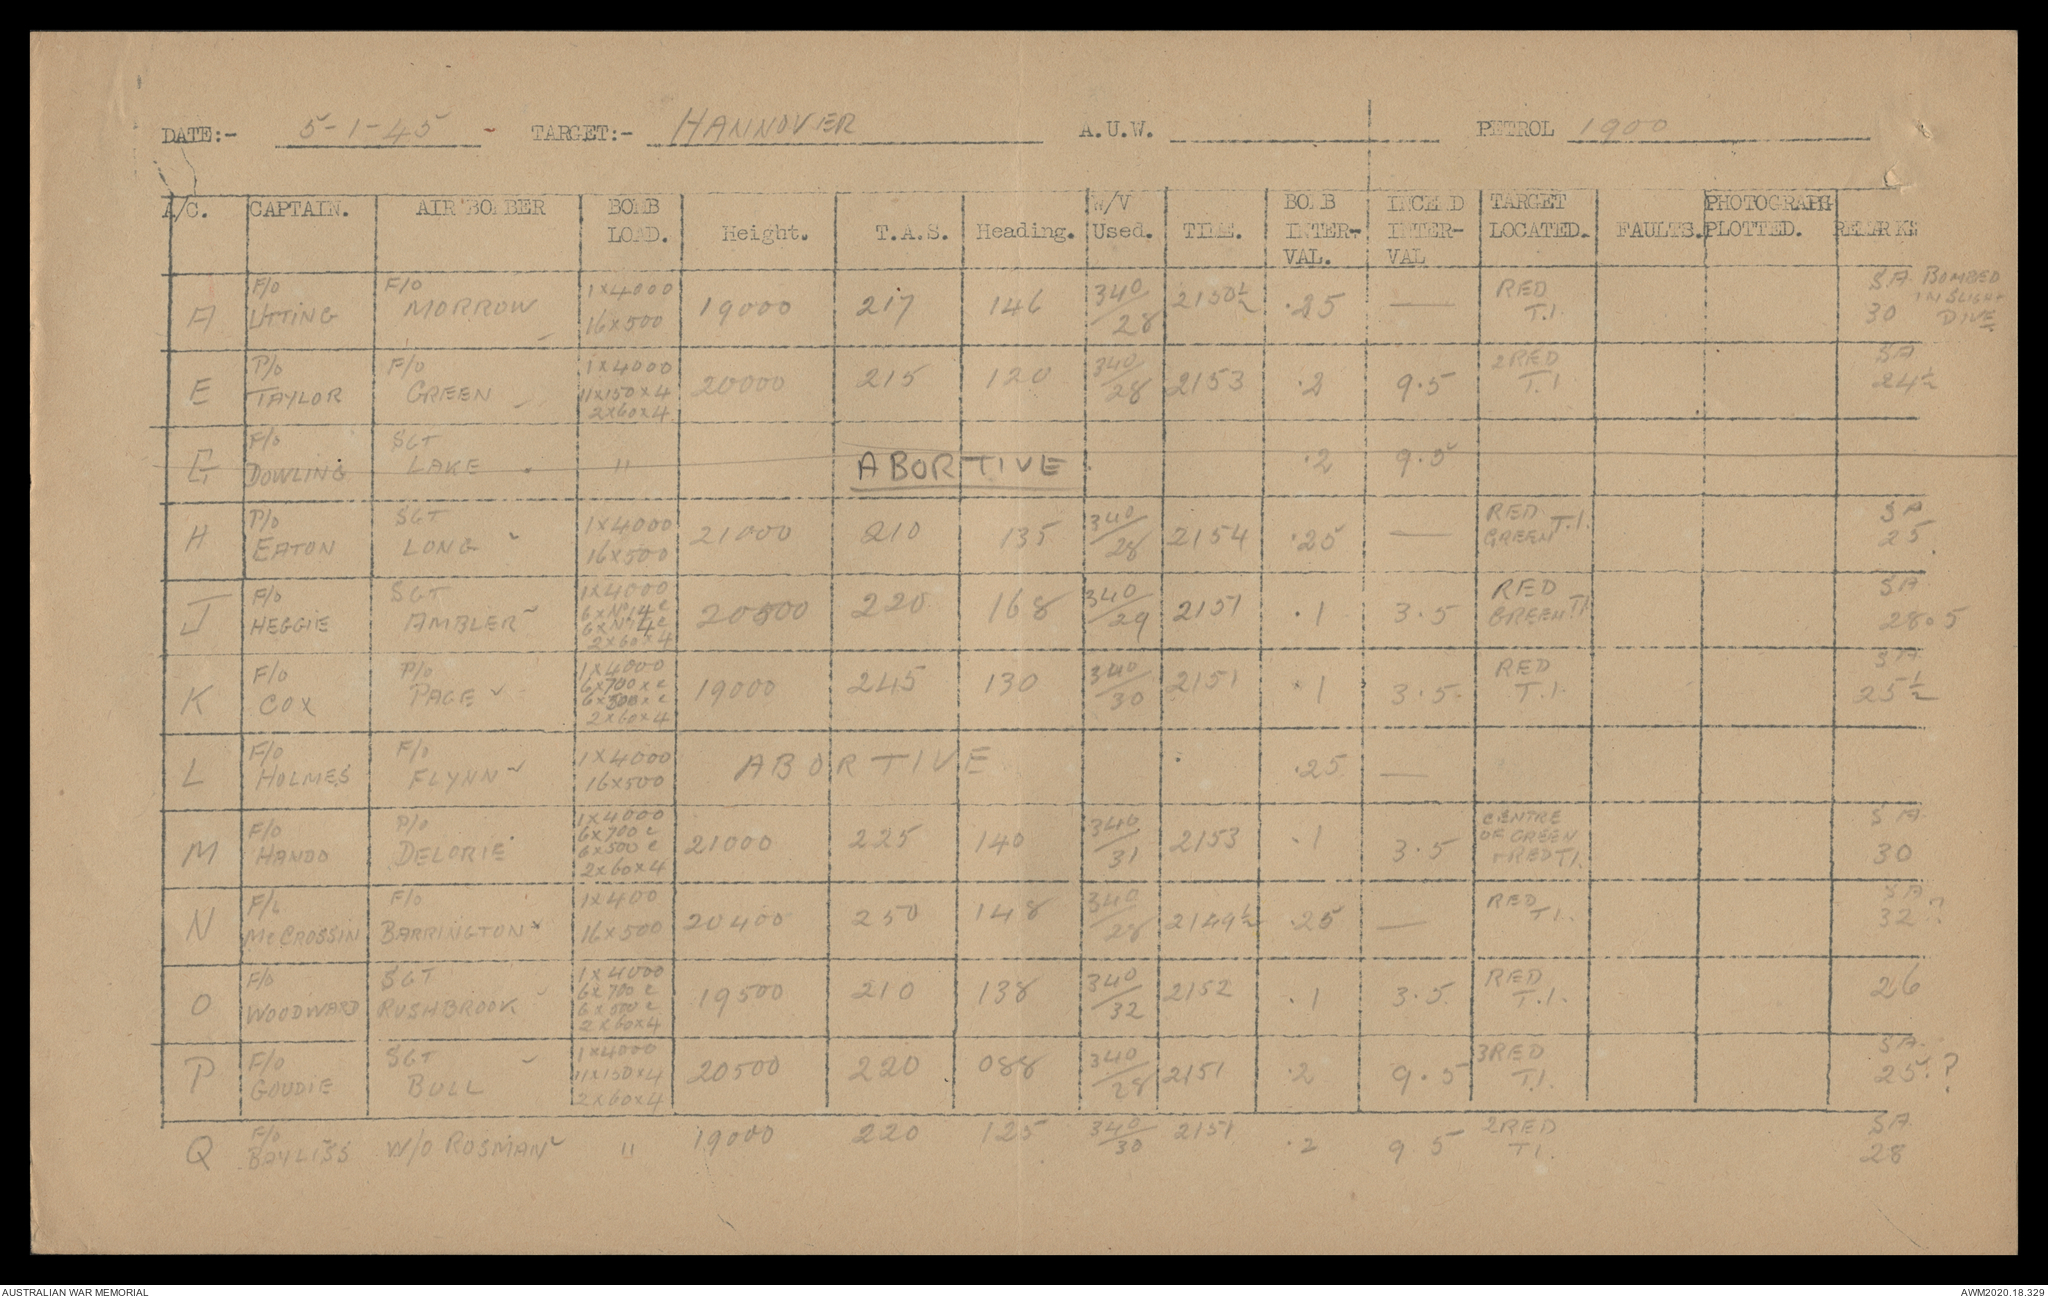 DATE:- 5-1-45 TARGET:- HANNOVER A.U.W. PETROL 1900
A/C. CAPTAIN. AIR BOMBER BOMB LOAD. Height. T.A.S. Heading. W/V Used. TIME. BOMB INTER- VAL. INCEND INTER- VAL TARGET LOCATED. FAULTS. PHOTOGRAPH PLOTTED. REMARKS
A F/O UTTING F/O MORROW 1x4000 16x500 19000 217 146 340/28 2150½ .25 — RED T.I. SA 30 BOMBED IN SLIGHT DIVE
E P/O TAYLOR F/O GREEN 1x4000 11x150x4 2x60x4 20000 215 120 340/28 2153 .2 9.5 2RED T.I. SA 24½
G F/O DOWLING SGT LAKE " ABORTIVE .2 9.5
H P/O EATON SGT LONG 1x4000 16x500 21000 210 135 340/28 2154 .25 — RED GREEN T.I. SA 25
J F/O HEGGIE SGT AMBLER 1x4000 2x60x4 20500 220 168 340/29 2151 .1 3.5 RED GREEN T.I. SA 28.5
K F/O COX P/O PAGE 1x4000 6x700xc 6x500xc 2x60x4 19000 245 130 340/30 2151 .1 3.5 RED T.I. SA 25½
L F/O HOLMES F/O FLYNN 1x4000 16x500 ABORTIVE .25 —
M F/O HANDO P/O DELORIE 1x4000 6x700c 6x500c 2x60x4 21000 225 140 340/31 2153 .1 3.5 CENTRE OF GREEN + RED T.I. SA 30
N F/L McCROSSIN F/O BARRINGTON 1x400 16x500 20400 250 148 340/28 2149½ .25 — RED T.I. SA 32 ?
O F/O WOODWARD SGT RUSHBROOK 1x4000 6x700c 6x500c 2x60x4 19500 210 138 340/32 2152 .1 3.5 RED T.I. 26
P F/O GOUDIE SGT BULL 1x4000 11x150x4 2x60x4 20500 220 088 340/28 2151 .2 9.5 3RED T.I. SA 25.?
Q F/O BAYLISS W/O ROSMAN " 19000 220 125 340/30 2151 .2 9.5 2RED T.I. SA 28
AUSTRALIAN WAR MEMORIAL AWM2020.18.329